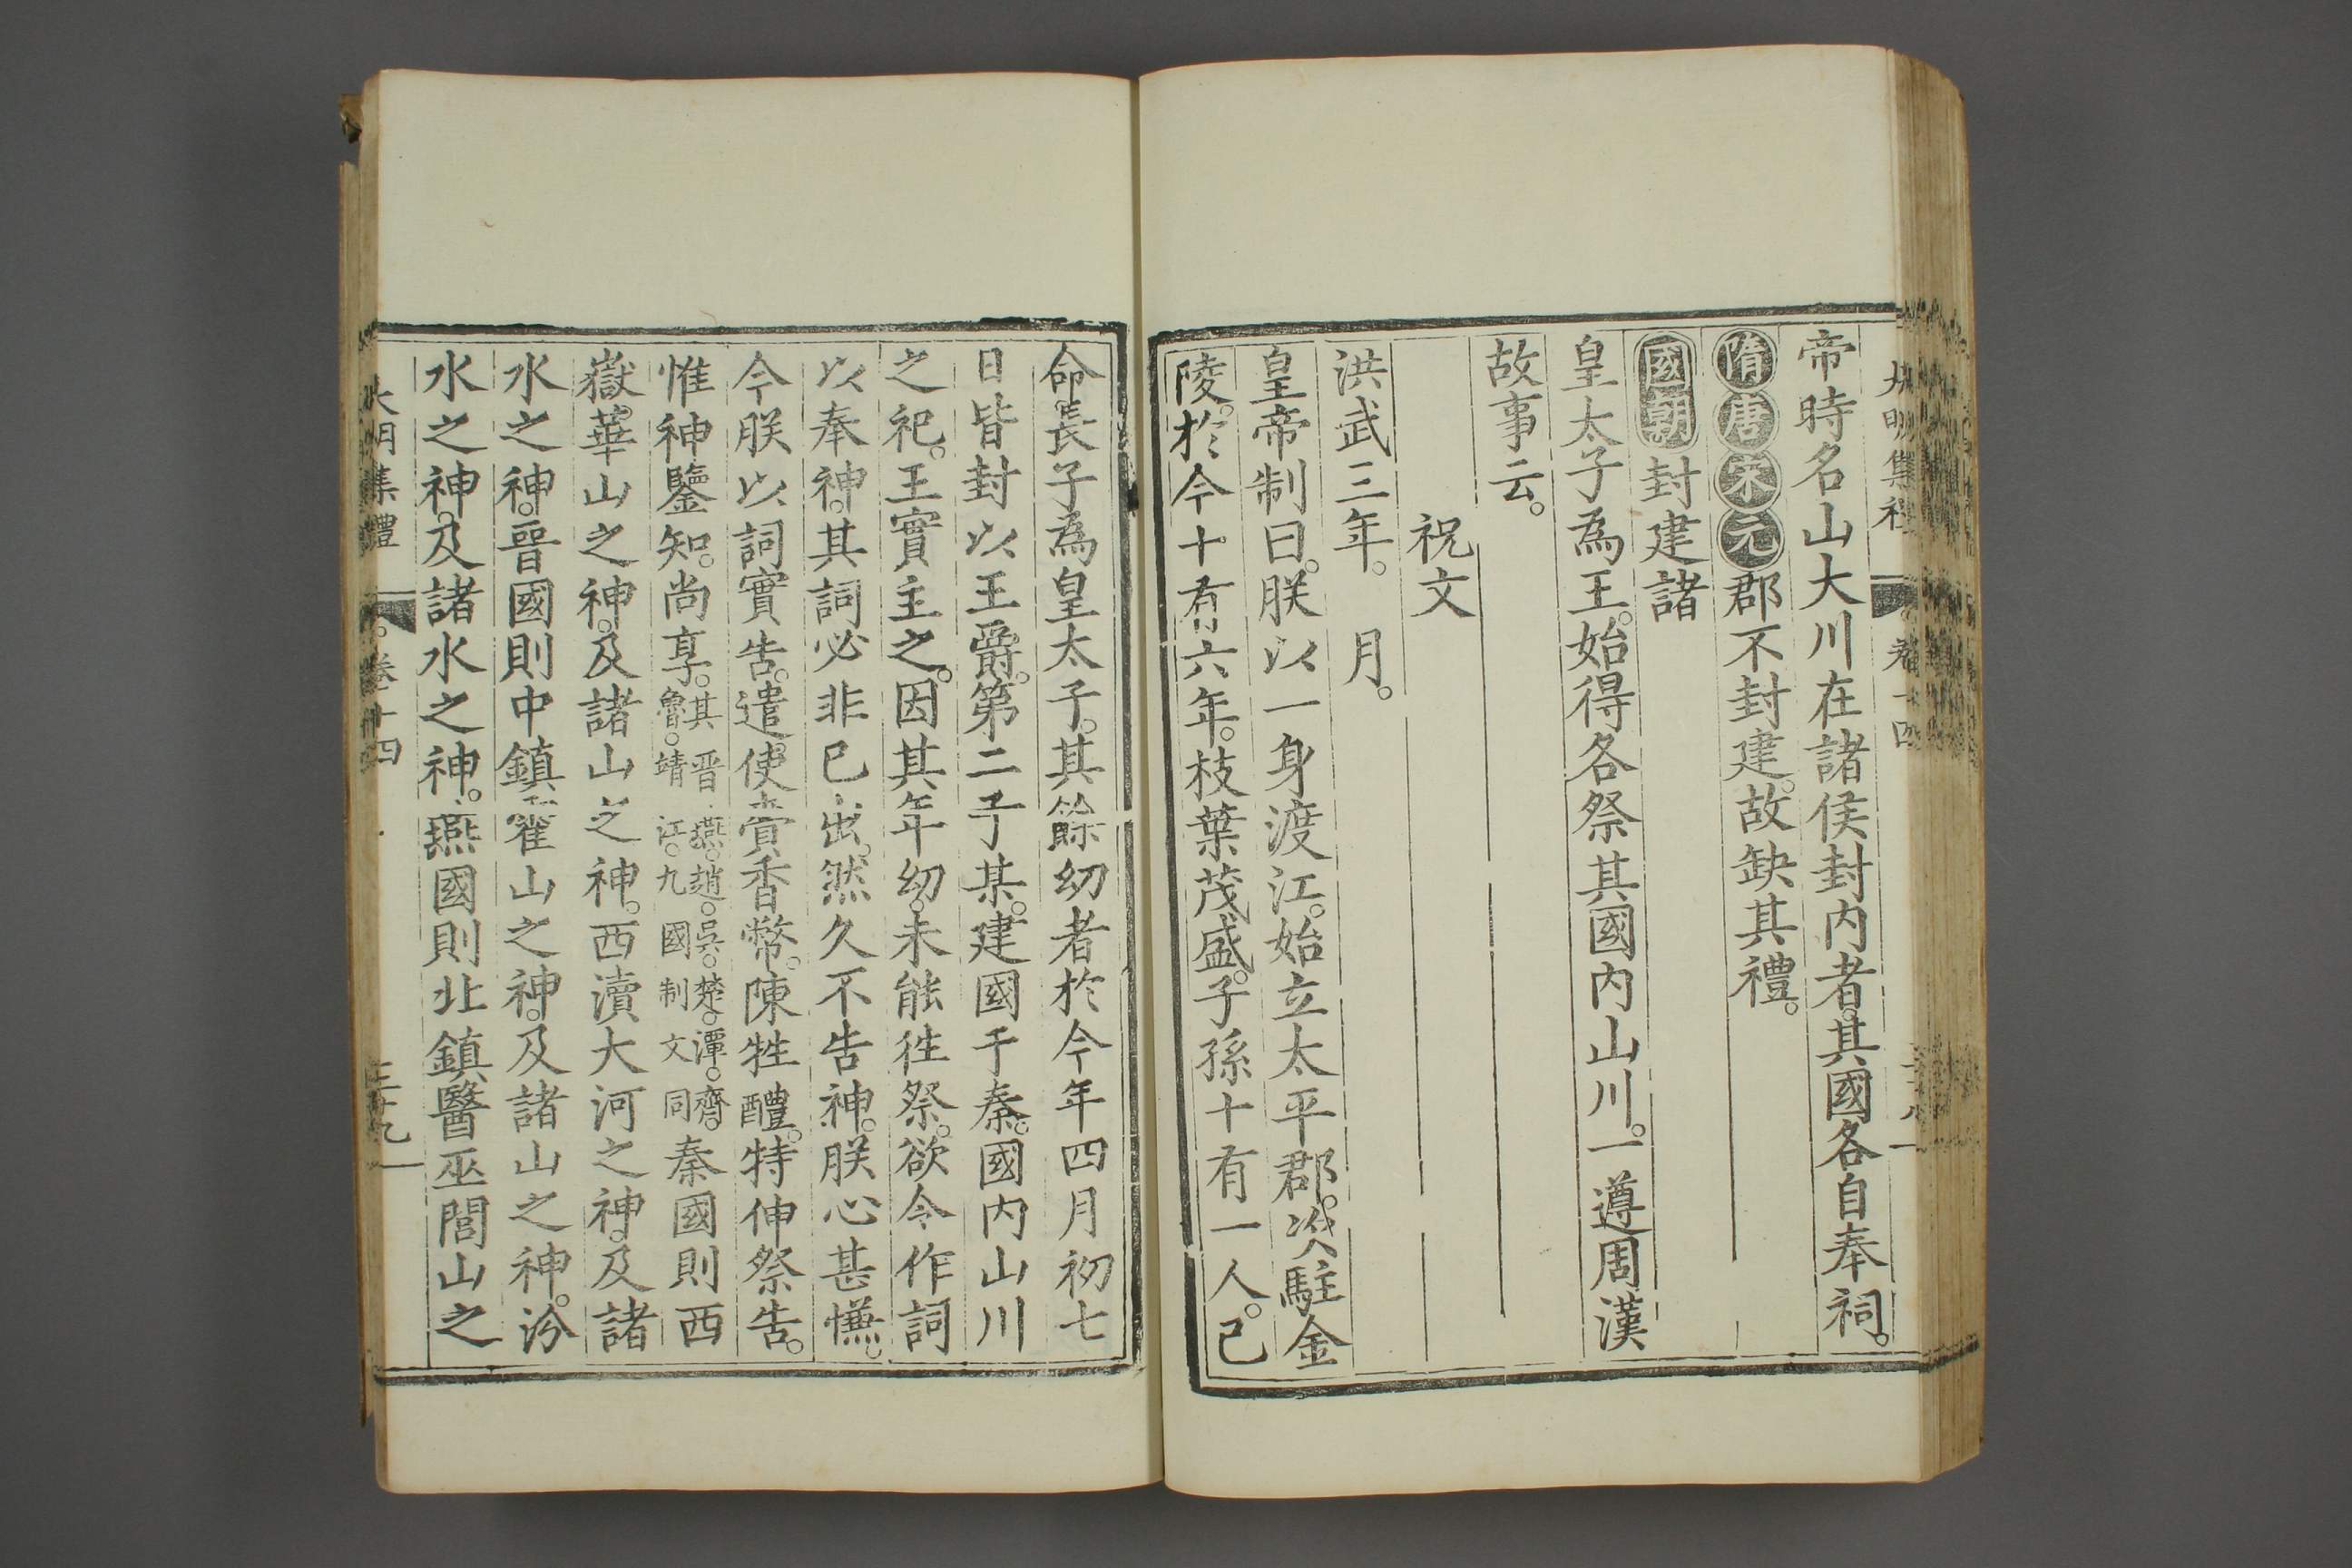 大明集禮 卷十四
帝時名山大川在諸侯封内者。其國各自奉祠。
隋唐宋元郡不封建。故缺其禮。
國朝封建諸
皇太子為王。始得各祭其國内山川。一遵周漢
故事云。
祝文
洪武三年。月。
皇帝制曰。朕以一身渡江。始立太平郡。次駐金
陵。於今十有六年。枝葉茂盛。子孫十有一人。已
命長子為皇太子。其餘幼者於今年四月初七
日皆封以王爵。第二子某。建國于秦。國内山川
之祀。王實主之。因其年幼。未能徃祭。欲令作詞
以奉神。其詞必非已出。然久不告神。朕心甚慊。
今朕以詞實告。遣使賫香幣。陳牲醴。特伸祭告。
惟神鑒知。尚享。其晋。燕。趙。吳。楚。潭。齊。魯。靖江。九國制文同秦國則西
嶽華山之神。及諸山之神。西瀆大河之神。及諸
水之神。晋國則中鎮霍山之神。及諸山之神。汾
水之神。及諸水之神。燕國則北鎮醫巫閭山之
大明集禮 卷十四 三十九